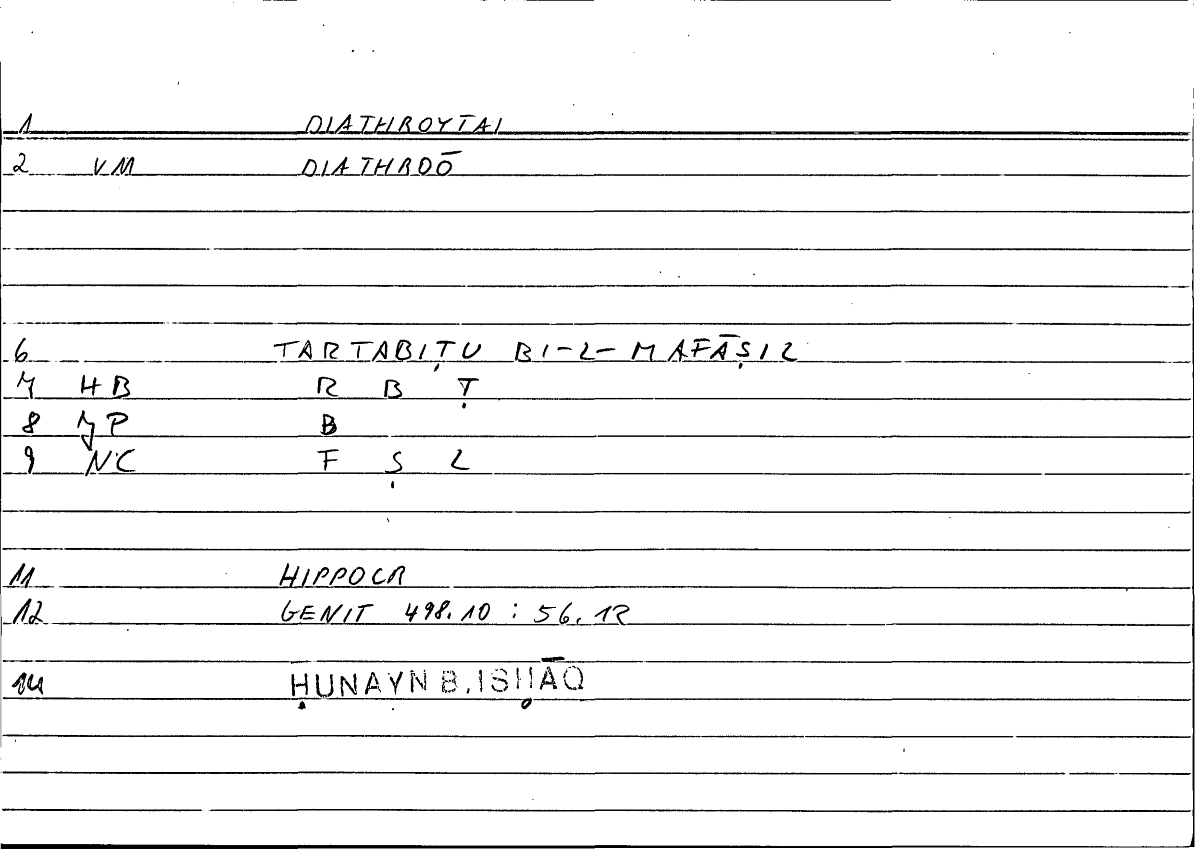 1 DIATHROYTAI
2 VM DIATHROŌ
6 TARTABIṬU BI-L-MAFĀṢIL
7 HB R B Ṭ
8 JP B
9 NC F Ṣ L
11 HIPPOCR
12 GENIT 498.10 : 56.12
14 ḤUNAYN B. ISḤĀQ